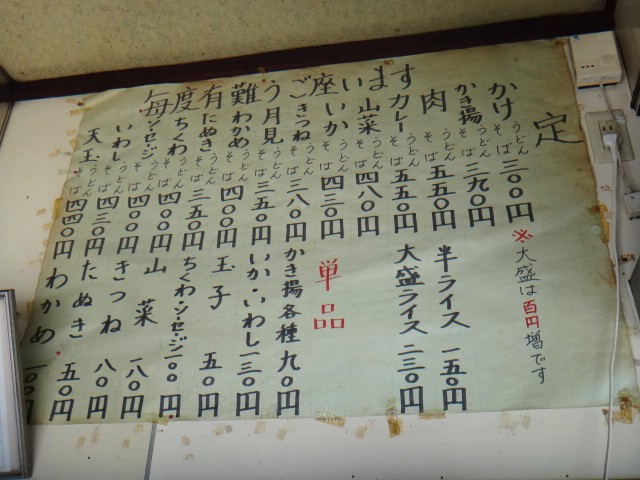 毎度有難うご座います
定
※大盛は百円増です
かけ うどん そば 三〇〇円
かき揚 うどん そば 三九〇円
肉 うどん そば 五五〇円
半ライス 一五〇円
カレー うどん そば 五五〇円
大盛ライス 二三〇円
山菜 うどん そば 四八〇円
いか うどん そば 四三〇円
単品
きつね うどん そば 三八〇円
かき揚各種 九〇円
月見 うどん そば 三五〇円
いか・いわし 一三〇円
わかめ うどん そば 四〇〇円
玉子 五〇円
たぬき うどん そば 三五〇円
ちくわ・ソーセージ 一〇〇円
ちくわ うどん そば 四〇〇円
山菜 一八〇円
ソーセージ うどん そば 四〇〇円
きつね 八〇円
いわし うどん そば 四三〇円
たぬき 五〇円
天玉 うどん そば 四四〇円
わかめ 一〇〇円